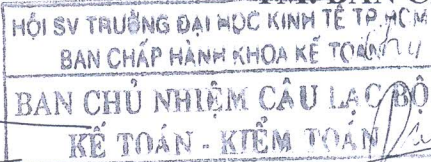 HỘI SV TRƯỜNG ĐẠI HỌC KINH TẾ TP.HCM
BAN CHẤP HÀNH KHOA KẾ TOÁN
BAN CHỦ NHIỆM CÂU LẠC BỘ
KẾ TOÁN - KIỂM TOÁN